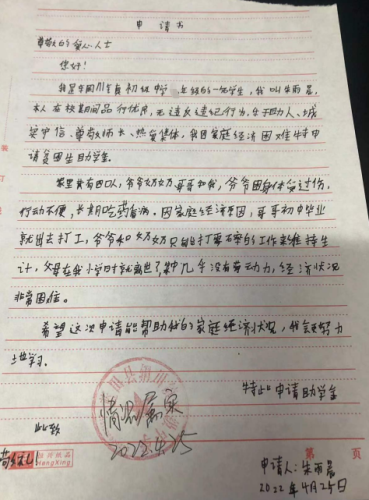 申请书
尊敬的爱心人士
您好!
我是 初级中学 的一名学生,我叫朱雨晨,
本人在校期间品行优异,无违反违纪行为,乐于助人、诚
实守信、尊敬师长、热爱集体,我因家庭经济困难特申
请贫困生助学金。
家里共有四口人,爷爷奶奶哥哥和我,爷爷因身体受过伤,
行动不便,长期吃药看病。因家庭经济原因,哥哥初中毕业
就出去打工,爷爷和奶奶只能打零零的工作来维持生
计,父母在我小学时就离世了,家中几乎没有劳动力,经济状况
非常困信。
希望这次申请能帮助我的家庭经济状况,我会更努力
地学习。
特此申请助学金
情况属实
此致
2022.4.25
敬礼
HangXing
第 页
申请人:朱雨晨
2022年4月25日